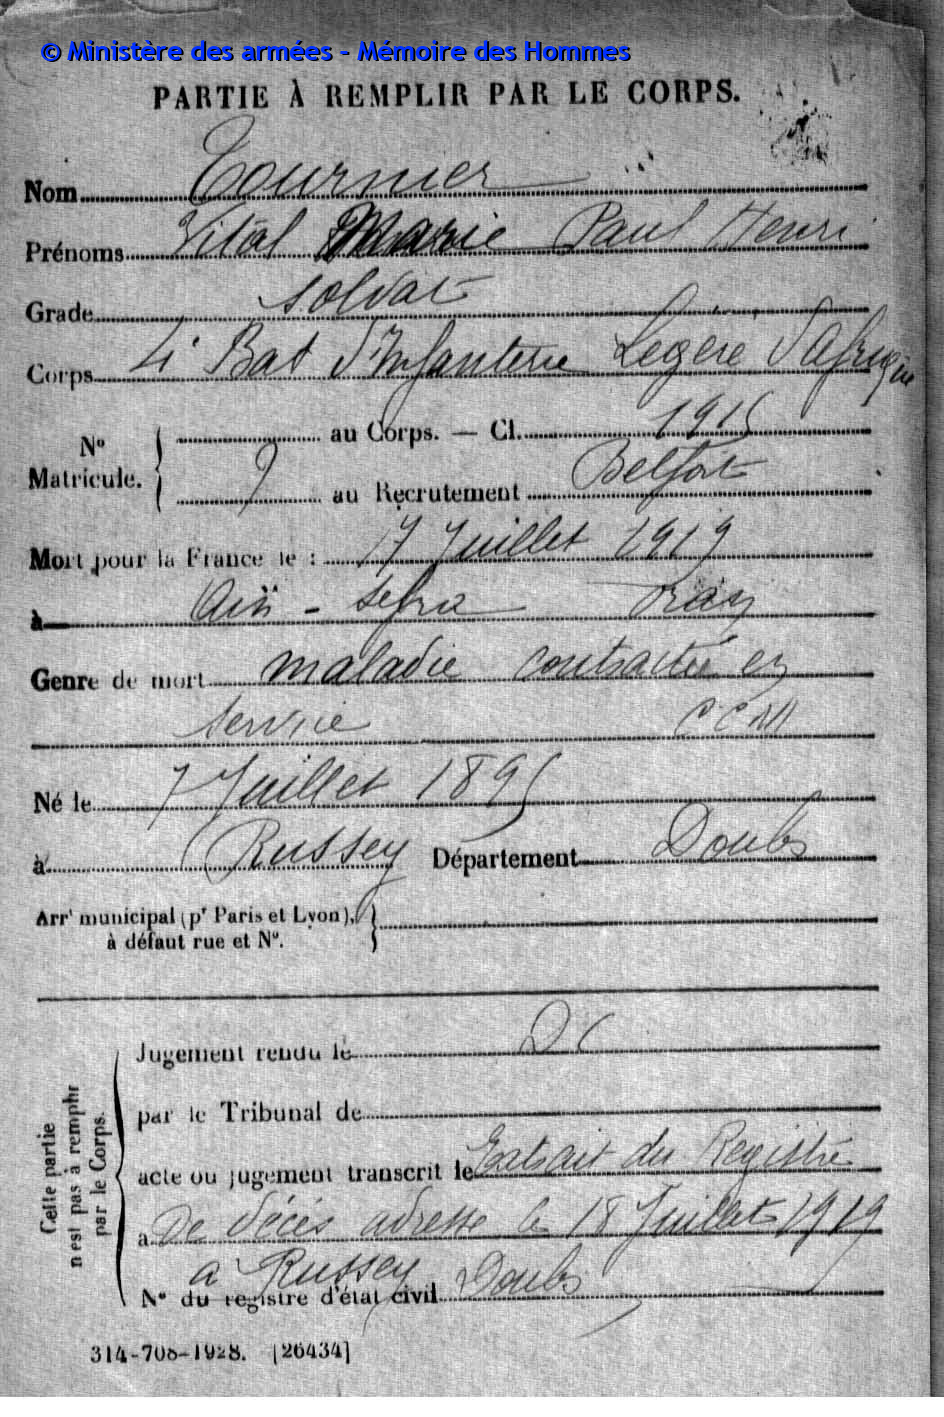 © Ministère des armées - Mémoire des Hommes
PARTIE À REMPLIR PAR LE CORPS.
Nom Tournier
Prénoms Vital Marie Paul Henri
Grade soldat
Corps 4e Bat d'Infanterie Légère d'Afrique
No Matricule. { au Corps. — Cl. 1915
9 au Recrutement Belfort
Mort pour la France le : 17 Juillet 1919
à Aïn - Sefra Oran
Genre de mort maladie contractée en
service
Né le 7 Juillet 1895
à Russey Département Doubs
Arrt municipal (pr Paris et Lyon), }
à défaut rue et No.
Cette partie n'est pas à remplir par le Corps.
Jugement rendu le
par le Tribunal de
acte ou jugement transcrit le Extrait du Registre
à De décès adressé le 18 Juillet 1919
à Russey Doubs
No du registre d'état civil
314-708-1928. [26434]